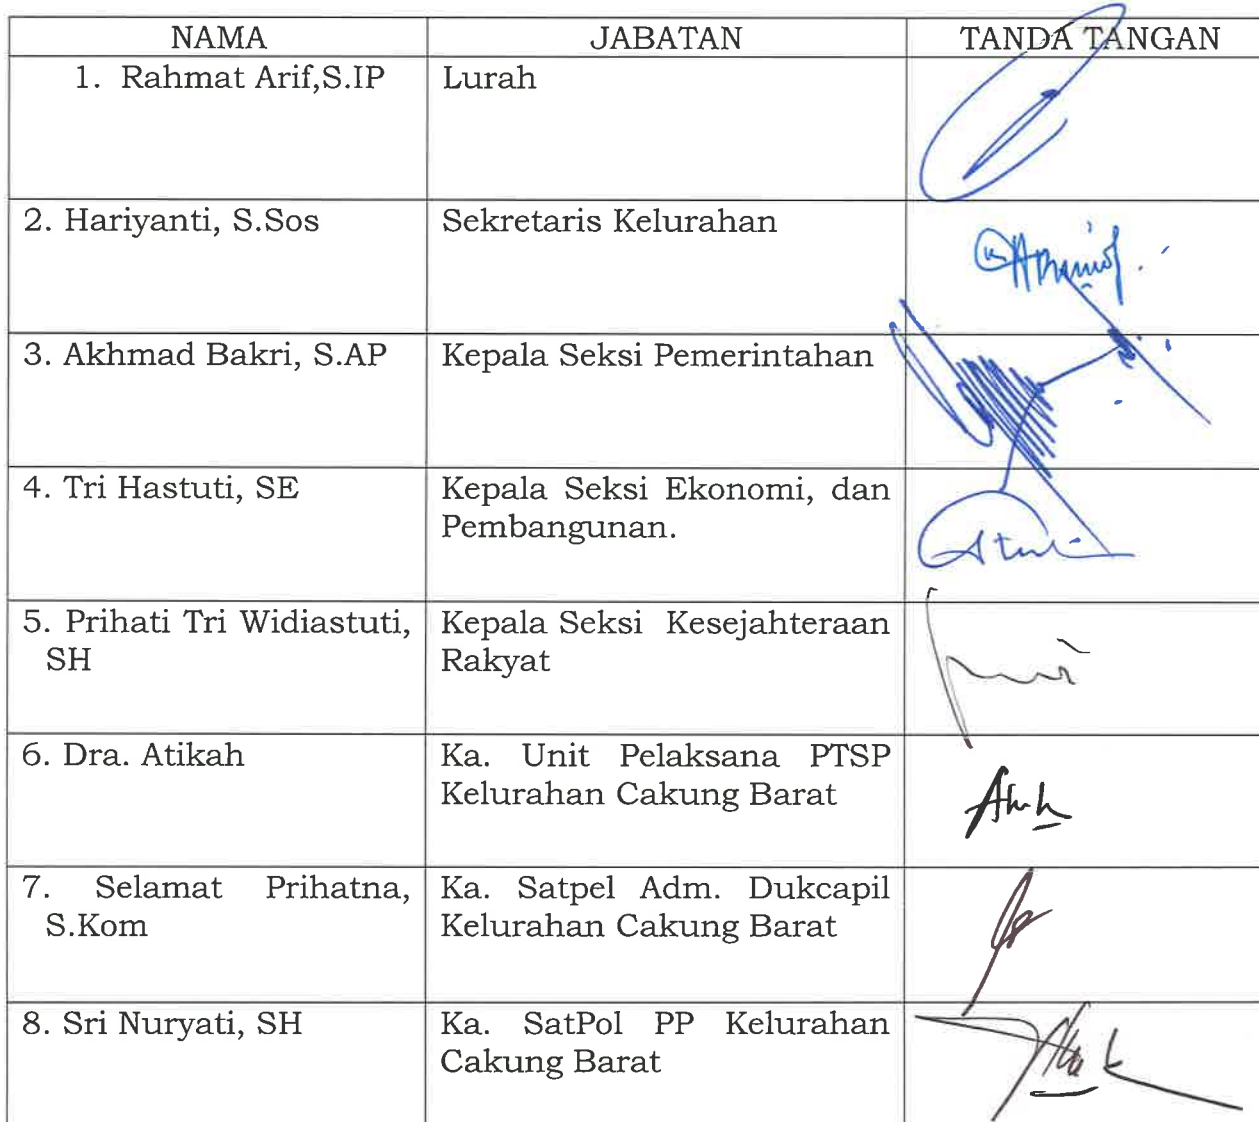 NAMA JABATAN TANDA TANGAN
1. Rahmat Arif,S.IP Lurah
2. Hariyanti, S.Sos Sekretaris Kelurahan
3. Akhmad Bakri, S.AP Kepala Seksi Pemerintahan
4. Tri Hastuti, SE Kepala Seksi Ekonomi, dan
Pembangunan.
5. Prihati Tri Widiastuti, Kepala Seksi Kesejahteraan
SH Rakyat
6. Dra. Atikah Ka. Unit Pelaksana PTSP
Kelurahan Cakung Barat
7. Selamat Prihatna, Ka. Satpel Adm. Dukcapil
S.Kom Kelurahan Cakung Barat
8. Sri Nuryati, SH Ka. SatPol PP Kelurahan
Cakung Barat